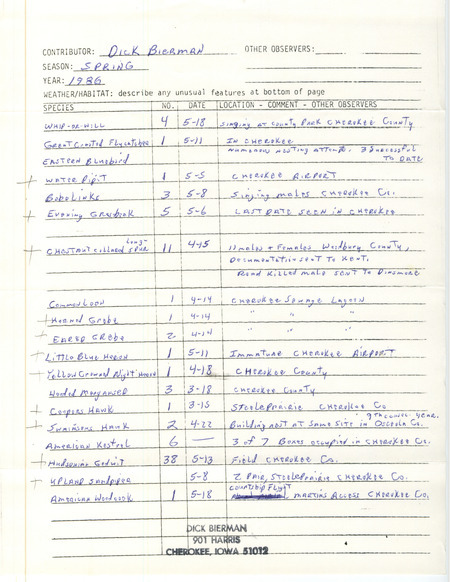 CONTRIBUTOR: DICK BIERMAN OTHER OBSERVERS:
SEASON: SPRING
YEAR: 1986
WEATHER/HABITAT: describe any unusual features at bottom of page
SPECIES NO. DATE LOCATION - COMMENT - OTHER OBSERVERS
WHIP-OR-WILL 4 5-18 Singing at County Park CHEROKEE County
Great Crested Flycatcher 1 5-11 IN CHEROKEE
EASTERN Bluebird numerous nesting attempts, 3 successful TO DATE
+ WATER Pipit 1 5-5 CHEROKEE AIRPORT
Bobolinks 3 5-8 Singing males CHEROKEE Co.
+ Evening Grosbeak 5 5-6 LAST DATE SEEN IN CHEROKEE
+ CHESTNUT collared Long-SPUR 11 4-15 11 males + Females Woodbury County,
Documentation sent To Kent.
Road Killed male sent To Dinsmore
Common Loon 1 4-14 CHEROKEE Sewage Lagoon
+ Horned Grebe 1 4-14 " "
+ EARED GREBE 2 4-14 " "
+ Little Blue Heron 1 5-11 Immature CHEROKEE AIRPORT
+ Yellow Crowned Night Heron 1 4-18 CHEROKEE County
Hooded Merganser 3 3-18 CHEROKEE County
+ Coopers Hawk 1 3-15 Steele Prairie CHEROKEE Co
+ Swainsons Hawk 2 4-22 Building nest at same site in Osceola Co.
American Kestrel 6 — 3 of 7 Boxes occupied in CHEROKEE Co.
+ Hudsonian Godwit 38 5-13 Field CHEROKEE Co.
+ UPLAND Sandpiper 5-8 2 PAIR, STEELE PRAIRIE CHEROKEE Co.
American Woodcock 1 5-18 COURTSHIP FLIGHT MARTINS ACCESS CHEROKEE Co.
DICK BIERMAN
901 HARRIS
CHEROKEE, IOWA 51012